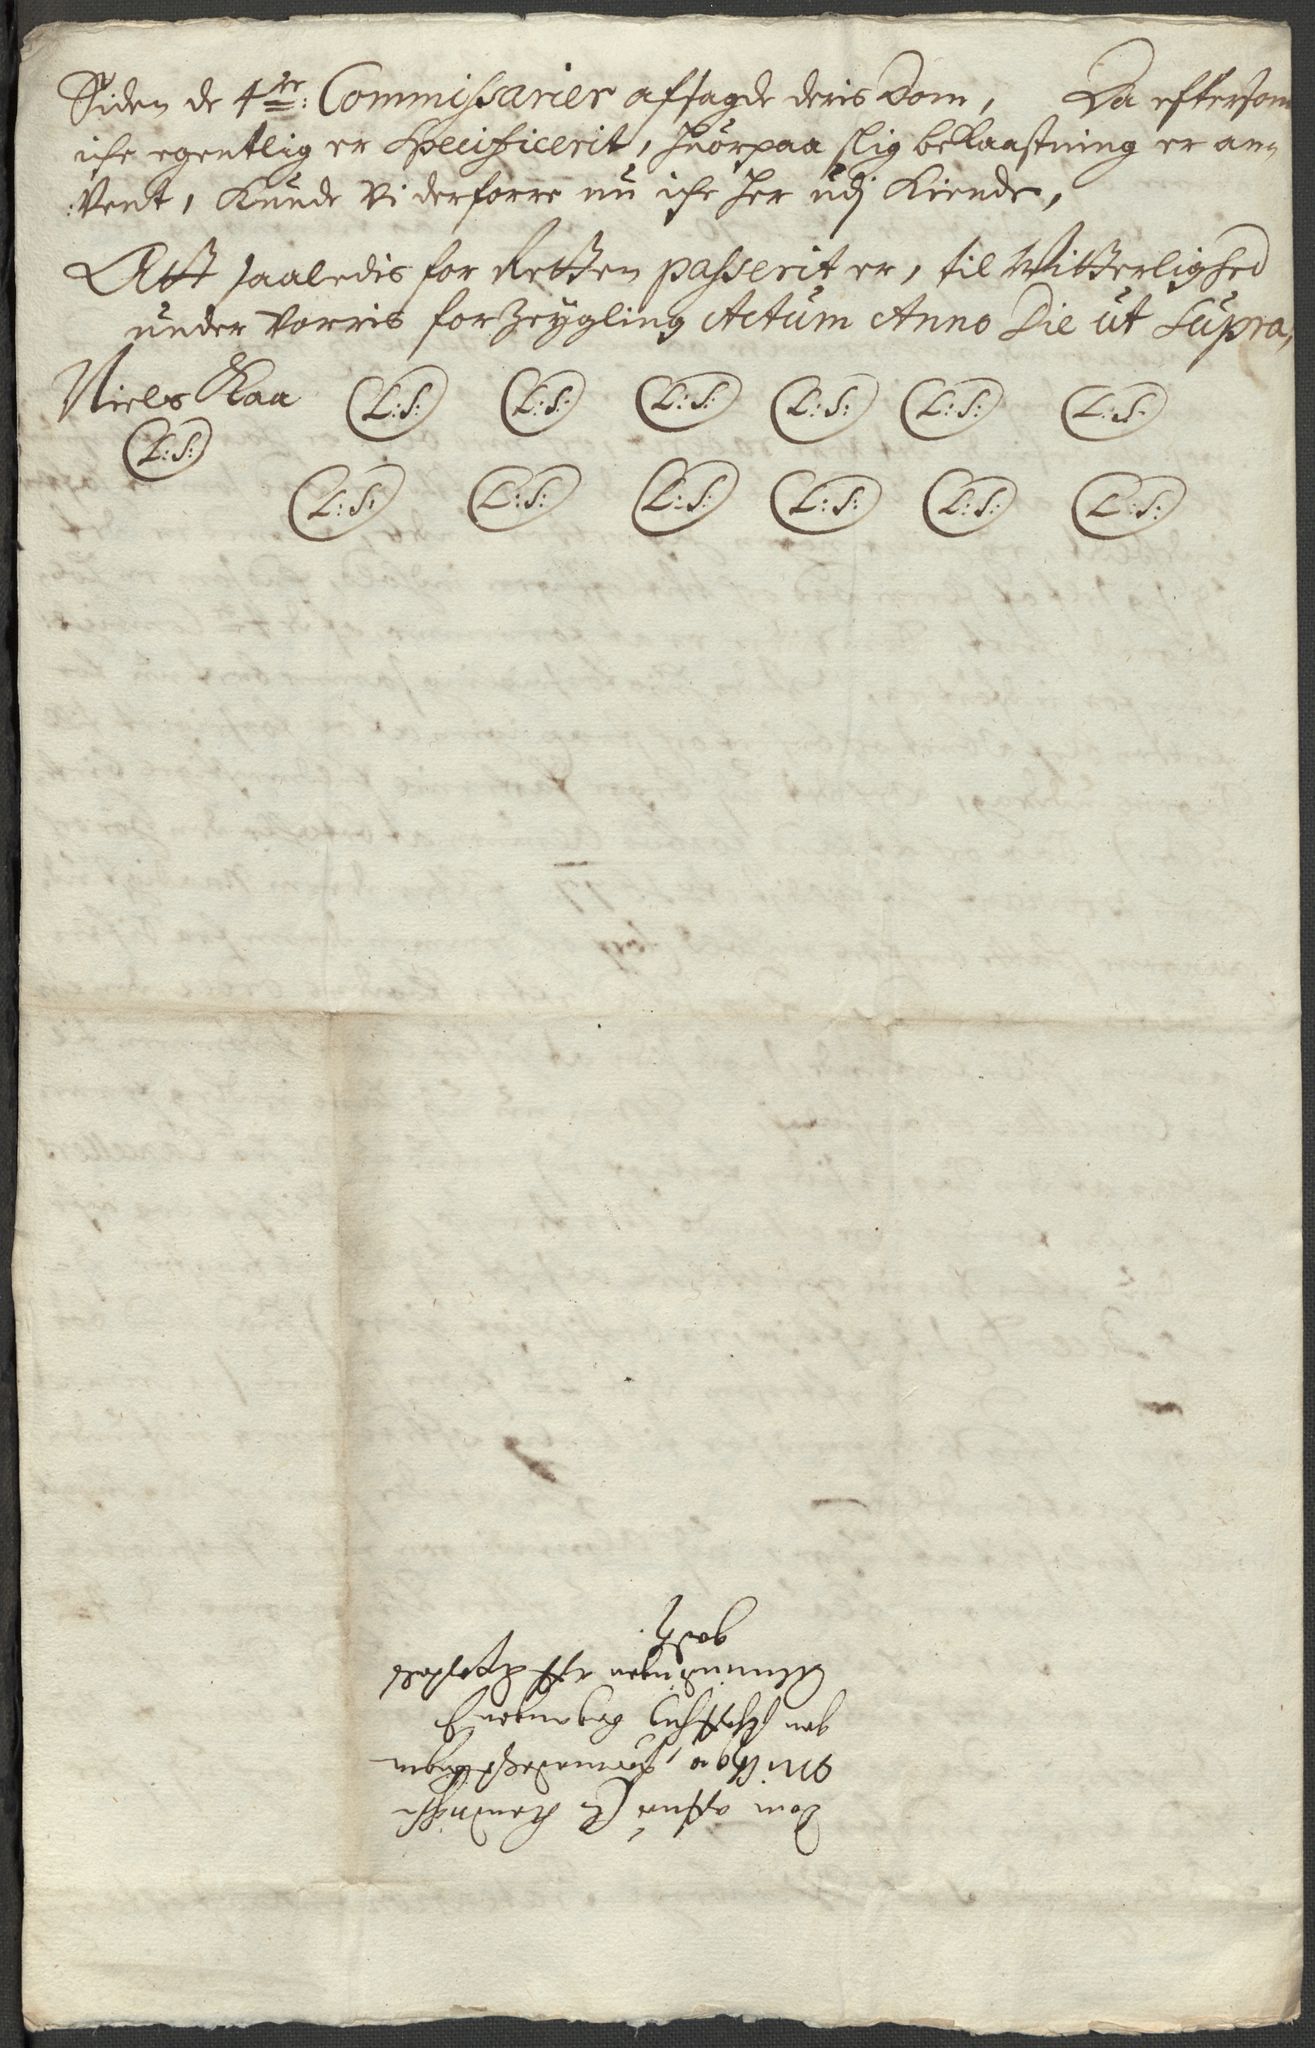 Siden de 4re: Commissarier afsagde deris Dom, Da eftersom
iche egentlig er Specificerit, huorpaa slig bekaastning er an-
vent, Kunde vi derforre nu iche her udj Kiende,
Att saaledis for Retten passerit er, til Witterlighed
under vorris forZeygling Actum Anno Die ut Supra,
Niels Kaa L:S: L:S: L:S: L:S: L:S: L:S:
L:S:
L:S: L:S: L:S: L:S: L:S: L:S:
Dom
gen
Almindingen
godz